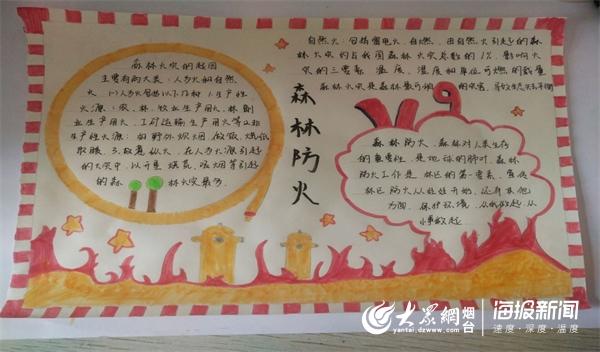 森林火灾的起因
主要有两大类：人为火和自然
火，以人为火包括以下几种 1.生产性
火源：农、林、牧业生产用火，林副
业生产用火，工矿运输生产用火等 2.非
生产性火源：如野外炊烟，做饭，烧纸
取暖 3.故意纵火，在人为火源引起
的火灾中，以开垦
吸烟等引起
的森林火灾最多。
森林防火
自然火：包括雷电火、自燃，由自然火引起的森
林火灾约占我国森林火灾总数的1%，影响火
灾的三要素
温度、湿度和单位可燃的载量
森林火灾是森林最可怕的灾害，
森林防火，森林对人类生存
的重要性，是地球的肺叶，森林
防火工作是林区的第一要素，
林区防火从娃娃开始，还有其他
方面，保护环境，从我做起，从
小事做起
大众网烟台
yantai.dzwww.com
海报新闻
速度·深度·温度